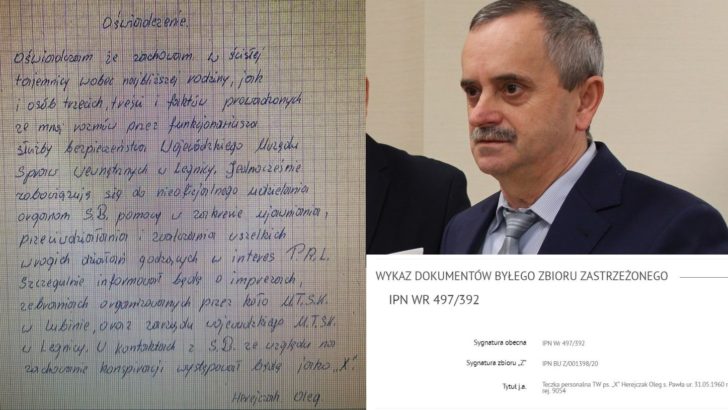 Oświadczenie.
Oświadczam że zachowam w ścisłej
tajemnicy wobec najbliższej rodziny, jak
i osób trzecich, treść i faktów prowadzonych
ze mną rozmów przez funkcjonariusza
służby bezpieczeństwa Wojewódzkiego Urzędu
Spraw Wewnętrznych w Legnicy. Jednocześnie
zobowiązuję się do nieoficjalnego udzielania
organom S.B. pomocy w zakresie ujawniania,
przeciwdziałania i zwalczania wszelkich
wrogich działań godzących w interes P.R.L.
Szczególnie informować będę o imprezach,
zebraniach organizowanych przez koło U.T.S.K.
w Lubinie, oraz zarządu wojewódzkiego U.T.S.K.
w Legnicy. W kontaktach z S.B. ze względu na
zachowanie konspiracji występował będę jako „X".
Herejczak Oleg.
WYKAZ DOKUMENTÓW BYŁEGO ZBIORU ZASTRZEŻONEGO
IPN WR 497/392
Sygnatura obecna IPN Wr 497/392
Sygnatura zbioru „Z" IPN BU Z/001398/20
Tytuł j.a. Teczka personalna TW ps. „X" Herejczak Oleg s. Pawła ur. 31.05.1960 r
rej. 9054